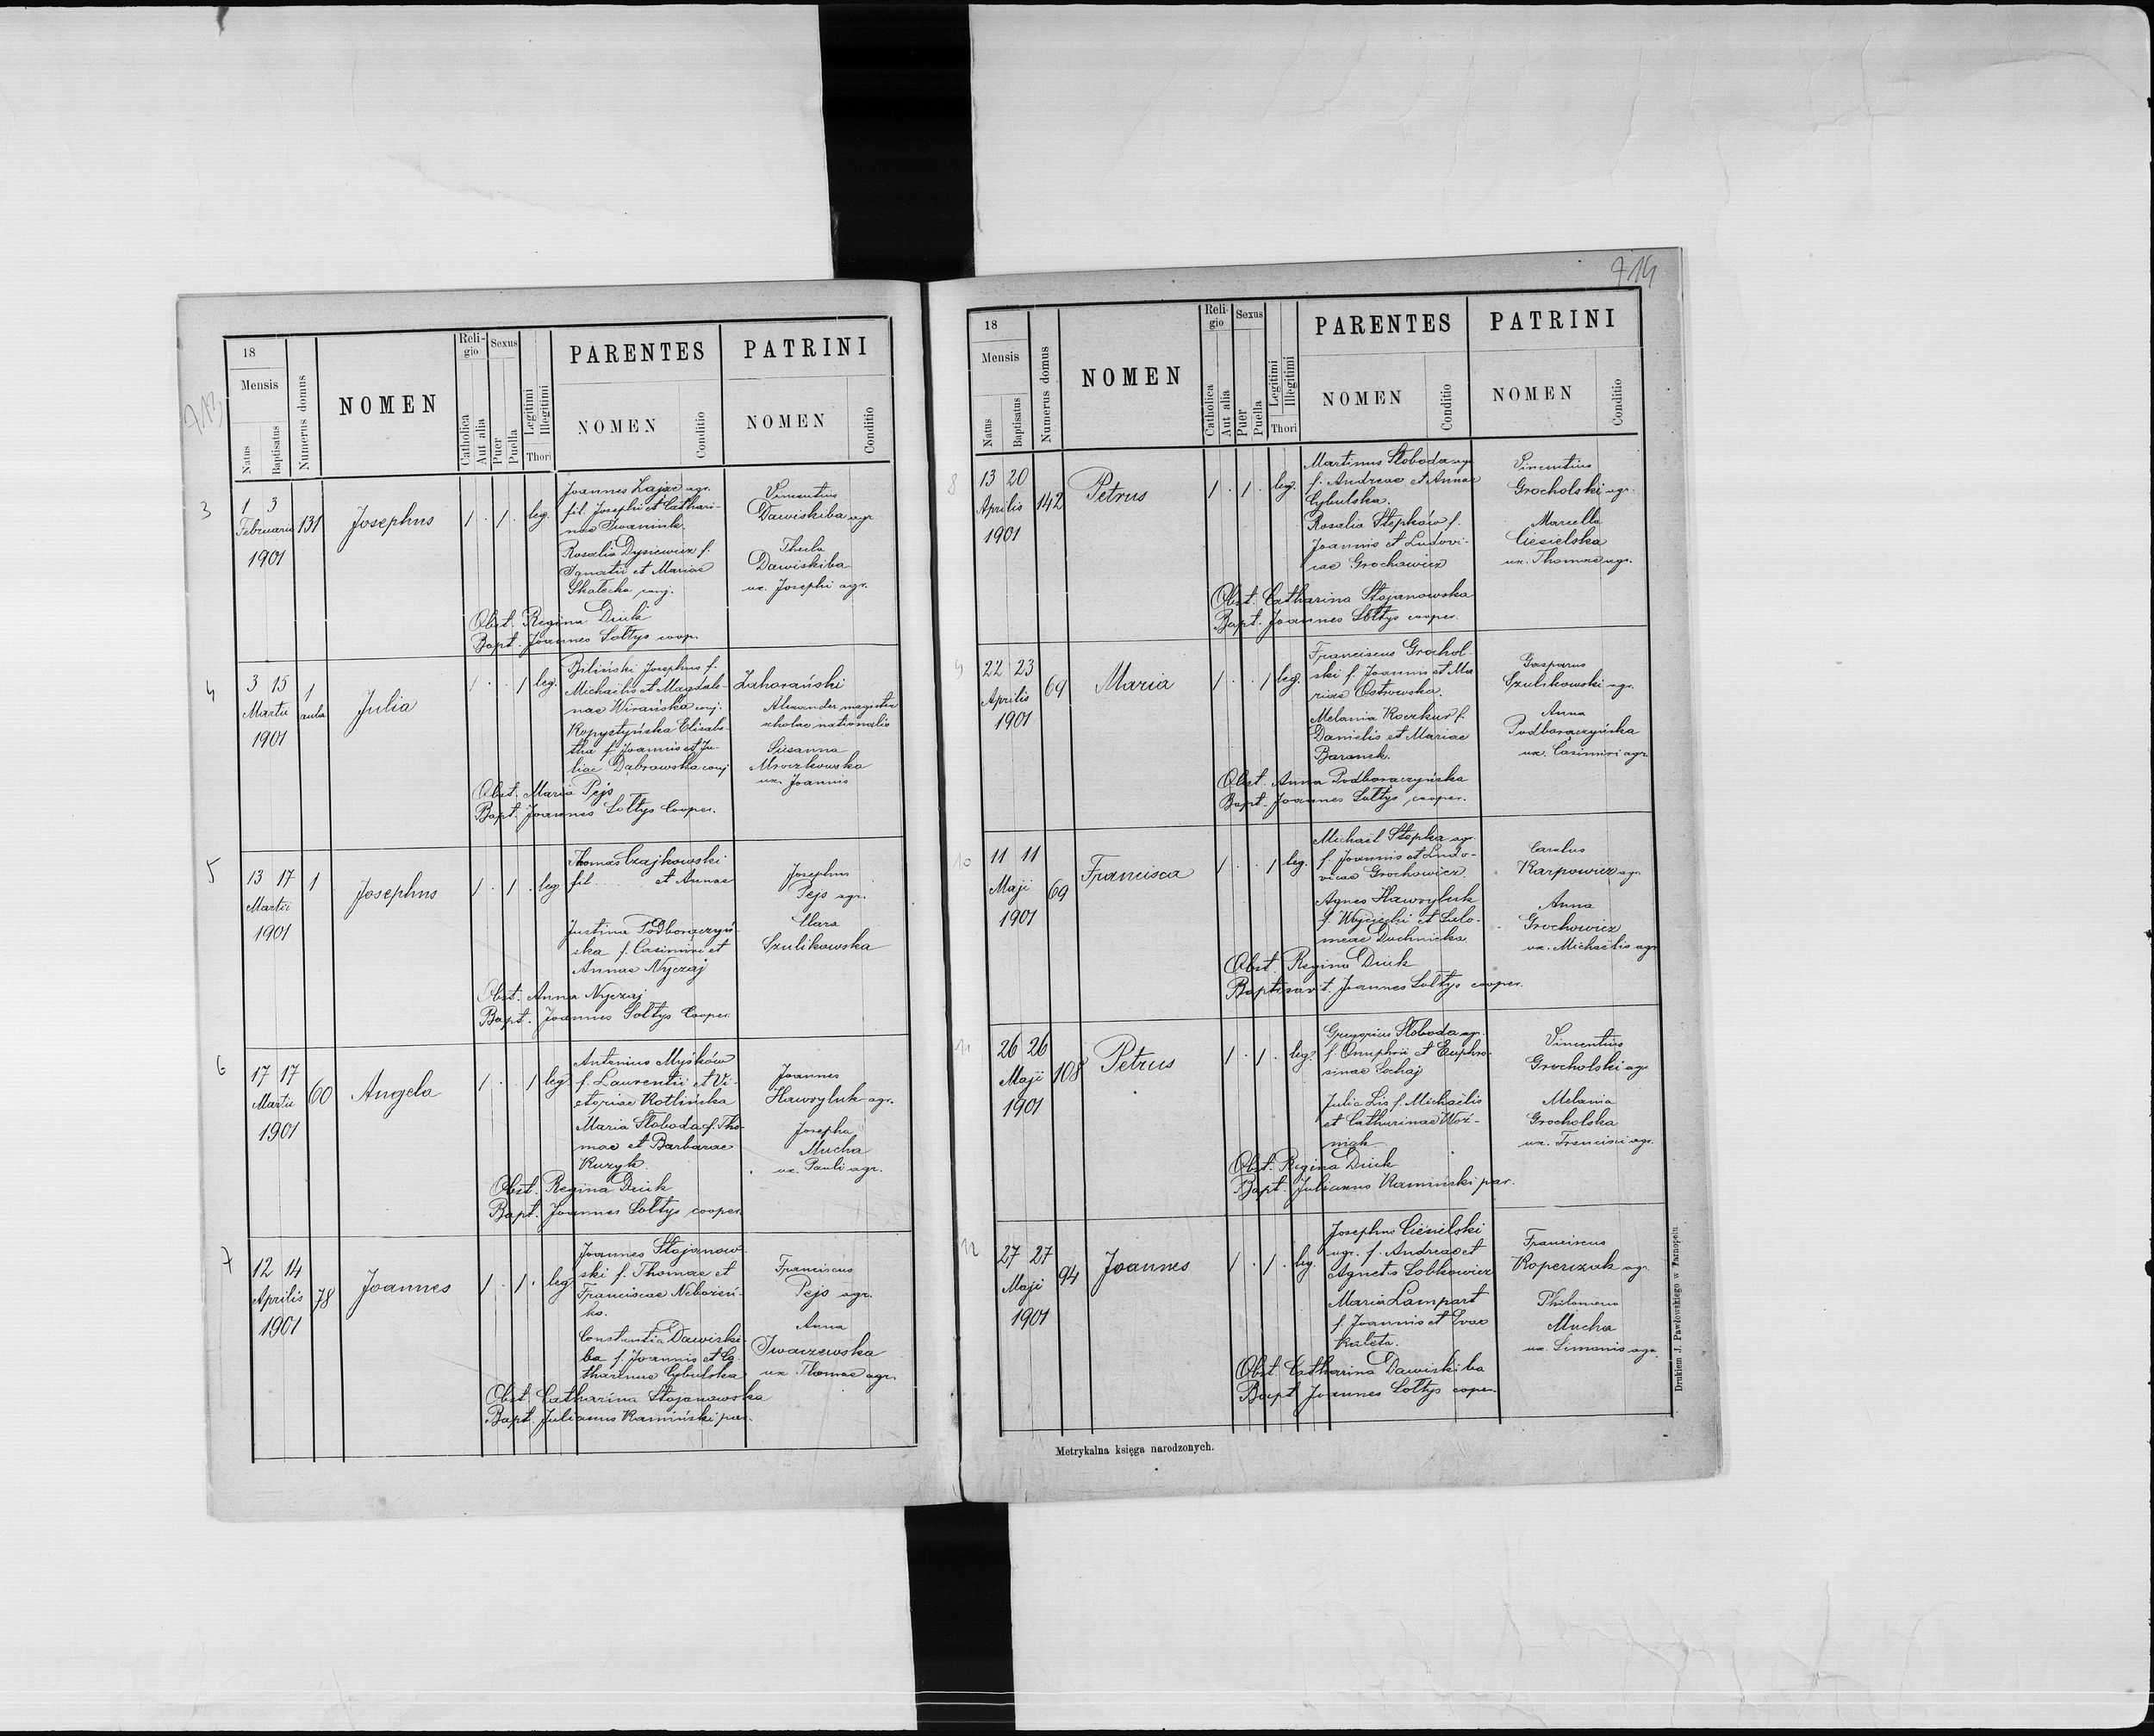 713
18
Mensis
Natus
Baptisatus
Numerus domus
NOMEN
Religio
Catholica
Aut alia
Sexus
Puer
Puella
Legitimi
Illegitimi
Thori
PARENTES
NOMEN
Conditio
PATRINI
NOMEN
Conditio
3
1 3
Februarii
1901
131
Josephus
1 . 1 . leg.
Joannes Zając agr.
fil. Josephi et Cathari-
nae Iwaniuk.
Rosalia Dysiewicz f.
Ignatii et Mariae
Skałecka conj.
Vincentius
Dawiskiba agr.
Thecla
Dawiskiba
ux. Josephi agr.
Obst. Regina Diuk
Bapt. Joannes Sołtys coop.
4
3 15
Martii
1901
1
aula
Julia
1 . . 1 leg.
Biliński Josephus f.
Michaelis et Magdale-
nae Wirańska conj.
Kopystyńska Elisabe-
tha f. Joannis et Ju-
liae Dąbrowska conj.
Zahorański
Alexander magister
scholae nationalis
Susanna
Mroczkowska
ux. Joannis
Obst. Maria Pejs
Bapt. Joannes Sołtys Cooper.
5
13 17
Martii
1901
1
Josephus
1 . 1 . leg
Thomas Czajkowski
fil. ...... et Annae
Justina Podborączyń
ska f. Casimiri et
Annae Nyczaj
Josephus
Pejs agr.
Clara
Szulikowska
Obst. Anna Nyczaj
Bapt. Joannes Sołtys Cooper.
6
17 17
Martii
1901
60
Angela
1 . . 1 leg.
Antonius Myśków
f. Laurentii et Vi-
ctoriae Kotlińska
Maria Słoboda f. Tho-
mae et Barbarae
Kuzyk.
Joannes
Hawryluk agr.
Josepha
Mucha
ux. Pauli agr.
Obst. Regina Diuk
Bapt. Joannes Sołtys cooper.
7
12 14
Aprilis
1901
78
Joannes
1 . 1 . leg
Joannes Stojanow-
ski f. Thomae et
Franciscae Neboźeń-
ko.
Constantia Dawiski-
ba f. Joannis et Ca-
tharinae Cybulska
Franciscus
Pejs agr.
Anna
Iwaczewska
ux Thomae agr.
Obst. Catharina Stojanowska
Bapt. Julianus Kamiński par.
714
18
Mensis
Natus
Baptisatus
Numerus domus
NOMEN
Religio
Catholica
Aut alia
Sexus
Puer
Puella
Legitimi
Illegitimi
Thori
PARENTES
NOMEN
Conditio
PATRINI
NOMEN
Conditio
8
13 20
Aprilis
1901
142
Petrus
1 . 1 . leg.
Martinus Słoboda agr
f. Andreae et Annae
Cybulska.
Rosalia Stepków f.
Joannis et Ludovi-
cae Grochowicz
Vincentius
Grocholski agr.
Marcella
Ciesielska
ux. Thomae agr.
Obst. Catharina Stojanowska
Bapt. Joannes Sołtys cooper.
9
22 23
Aprilis
1901
69
Maria
1 . . 1 leg.
Franciscus Grochol-
ski f. Joannis et Ma
riae Ostrowska.
Melania Koczkur f.
Danielis et Mariae
Baranek.
Gasparus
Szulikowski agr.
Anna
Podborączyńska
ux. Casimiri agr.
Obst. Anna Podborączyńska
Bapt. Joannes Sołtys cooper.
10
11 11
Maji
1901
69
Francisca
1 . . 1 leg.
Michaël Stepka agr.
f. Joannis et Ludo-
vicae Grochowicz.
Agnes Hawryluk
f. Wojciechi et Salo-
meae Duchnicka
Carolus
Karpowicz agr.
Anna
Grochowicz
ux. Michaelis agr
Obst. Regina Diuk
Baptisavit. Joannes Sołtys cooper.
11
26 26
Maji
1901
108
Petrus
1 . 1 . leg.
Gregorius Słoboda agr.
f. Onuphrii et Euphro-
sinae Sochaj
Julia Lis f. Michaelis
et Catharinae Woź-
niak
Vincentius
Grocholski agr
Melania
Grocholska
ux. Francisci agr.
Obst. Regina Diuk
Bapt. Julianus Kamiński par.
12
27 27
Maji
1901
94
Joannes
1 . 1 . leg.
Josephus Ciesielski
agr. f. Andreae et
Agnetis Sobkowicz
Maria Lampart
f. Joannis et Evae
Kaleta.
Franciscus
Koperczak agr.
Philomena
Mucha
ux. Simonis agr.
Obst. Catharina Dawiskiba
Bapt Joannes Sołtys cooper.
Metrykalna księga narodzonych.
Drukiem J. Pawłowskiego w Tarnopolu.